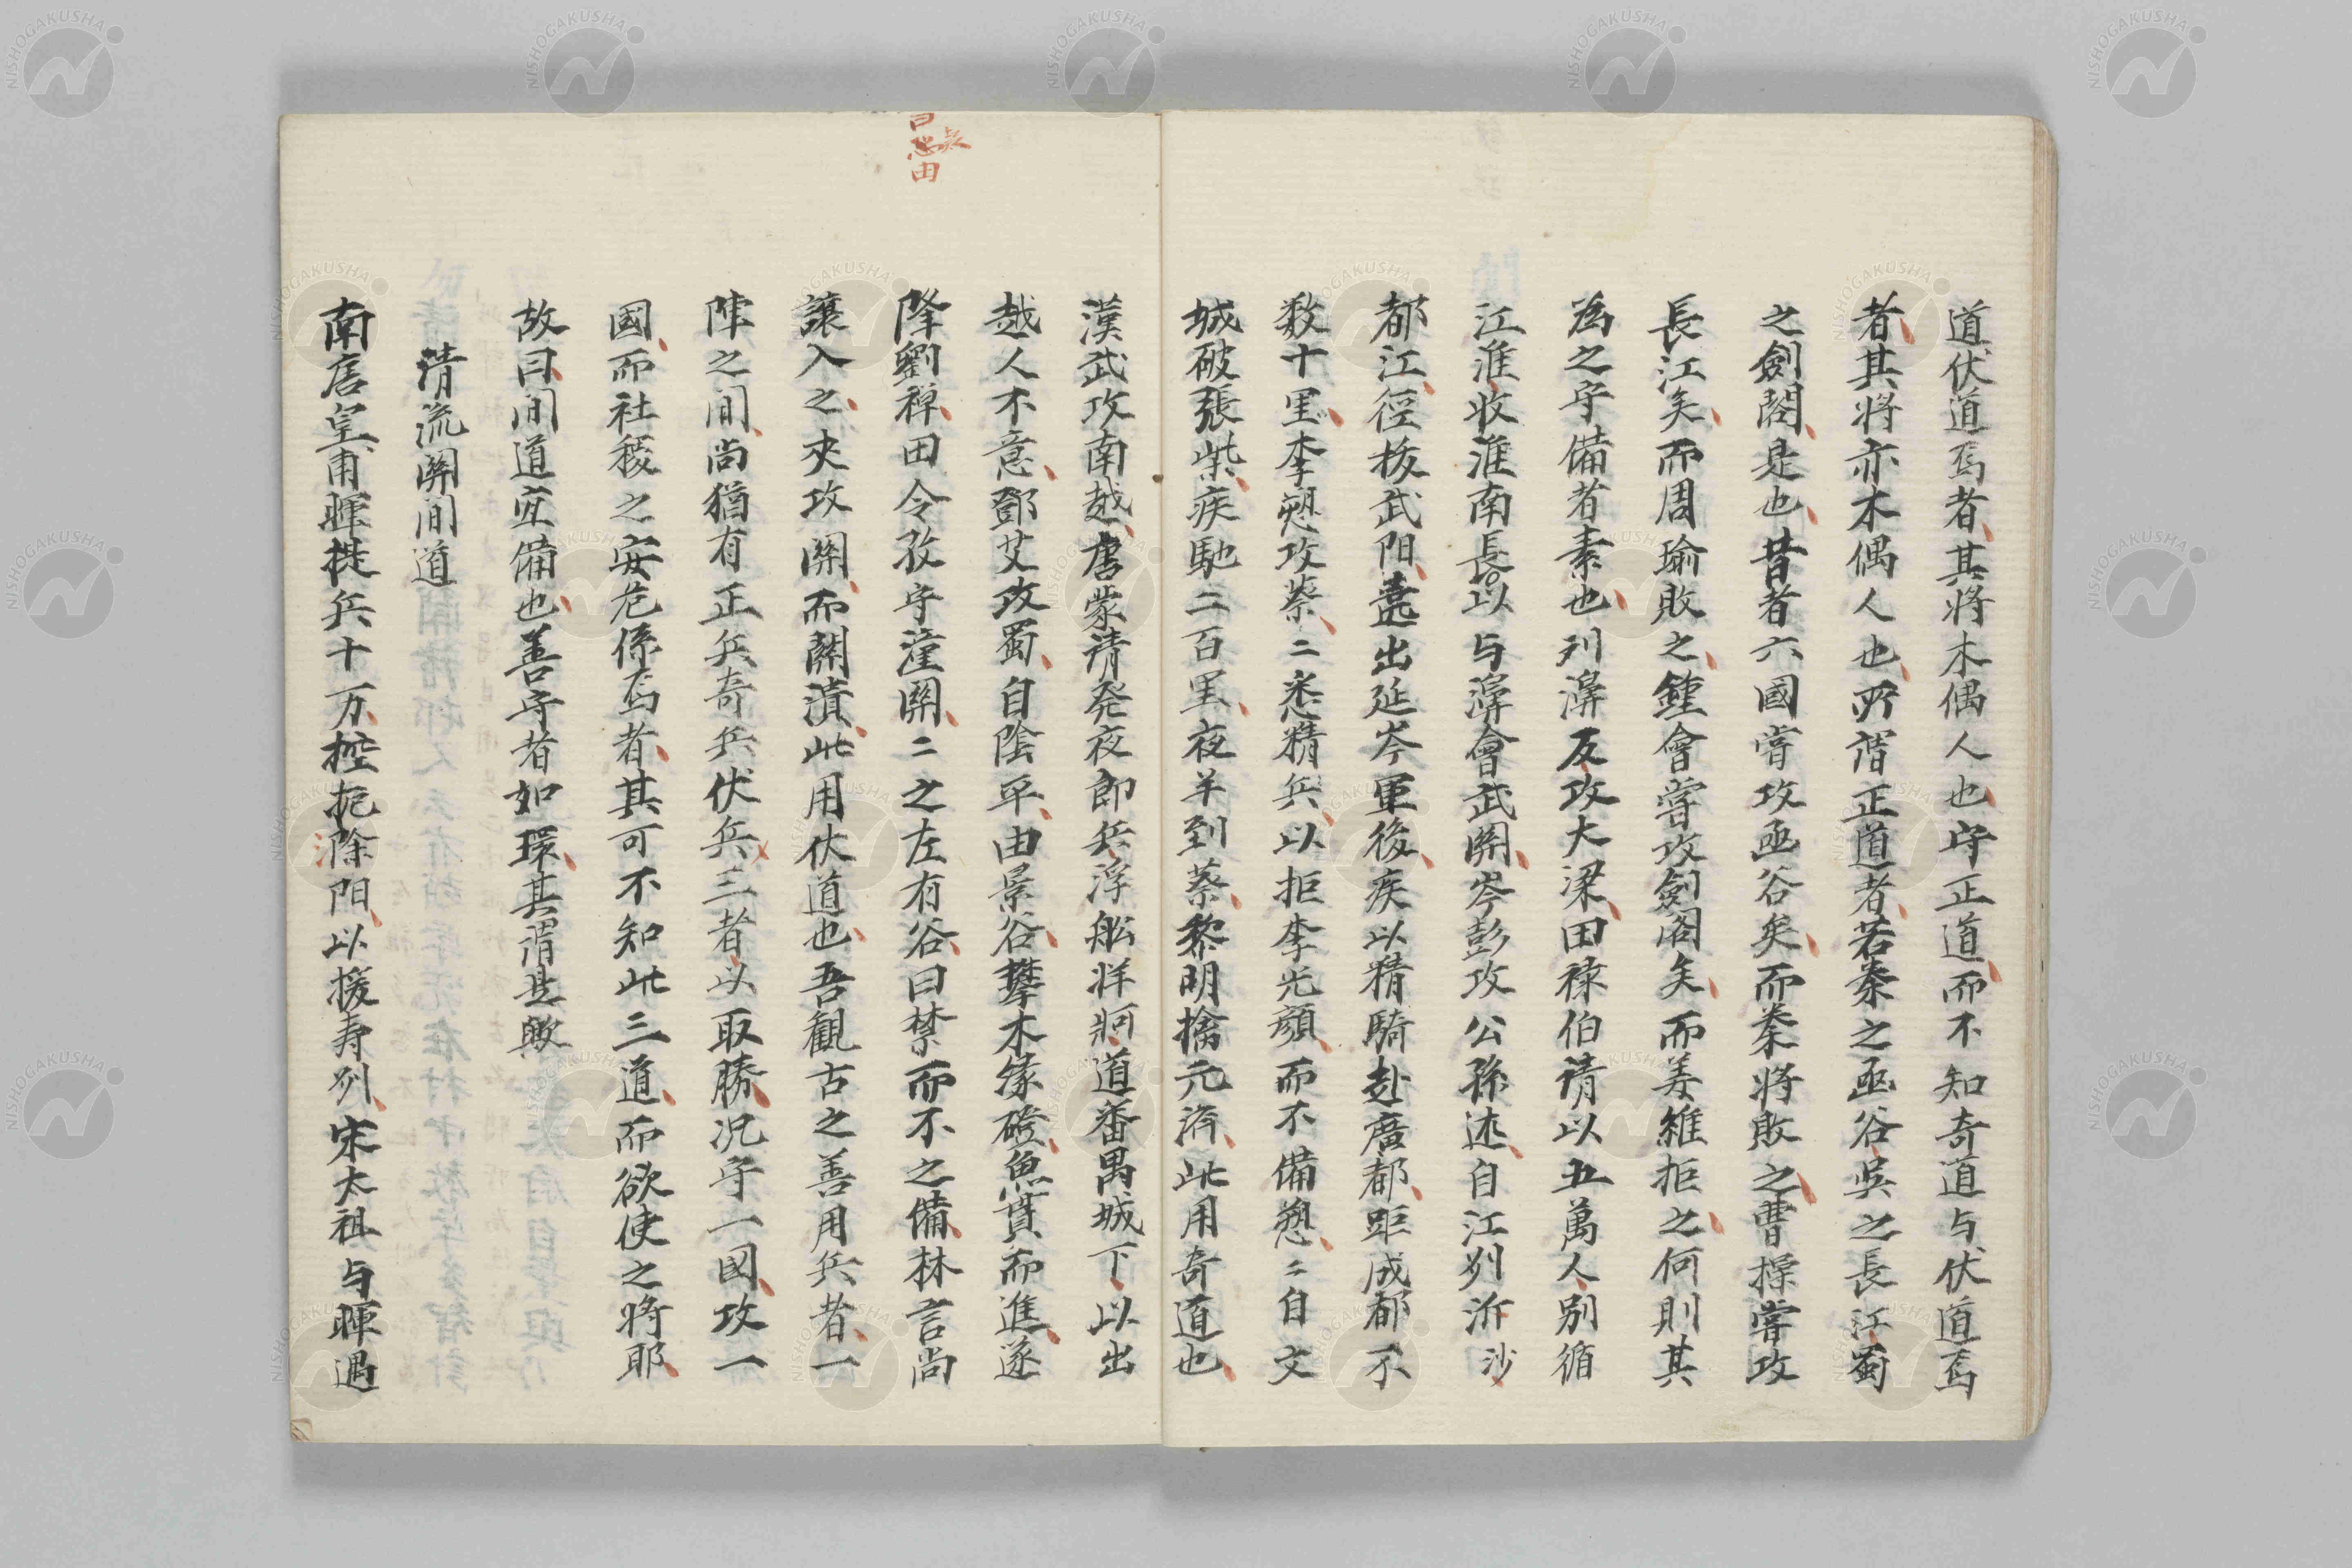 道伏道焉者其将木偶人也守正道而不知奇道与伏道焉
者其将亦木偶人也所謂正道者若秦之函谷呉之長江蜀
之劍閣是也昔者六國嘗攻函谷矣而秦将敗之曹操嘗攻
長江矣而周瑜敗之鍾會嘗攻劍閣矣而姜維拒之何則其
為之守備者素也刘濞反攻大梁田禄伯请以五萬人别循
江淮收淮南長以与濞會武関岑彭攻公孫述自江刘泝沙
都江徑拔武阳遶出延岑軍後疾以精騎赴廣都距成都不
数十里李愬攻蔡二悉精兵以拒李光顔而不備愬二自文
城破張柴疾馳二百里夜半到蔡黎明擒元濟此用奇道也
漢武攻南越唐蒙请発夜郎兵浮船牂牁道番禺城下以出
越人不意鄧艾攻蜀自陰平由景谷攀木缘磴魚貫而進遂
降劉禅田令孜守潼関二之左有谷曰禁而不之備林言尚
讓入之夾攻関而関潰此用伏道也吾観古之善用兵者一
陣之间尚猶有正兵奇兵伏兵三者以取勝况守一國攻一
國而社稷之安危係焉者其可不知此三道而欲使之将耶
故曰间道宜備也善守者如環其谓是歟
清流関间道
南唐皇甫暉提兵十万控扼除阳以援寿刘宋太祖与暉遇